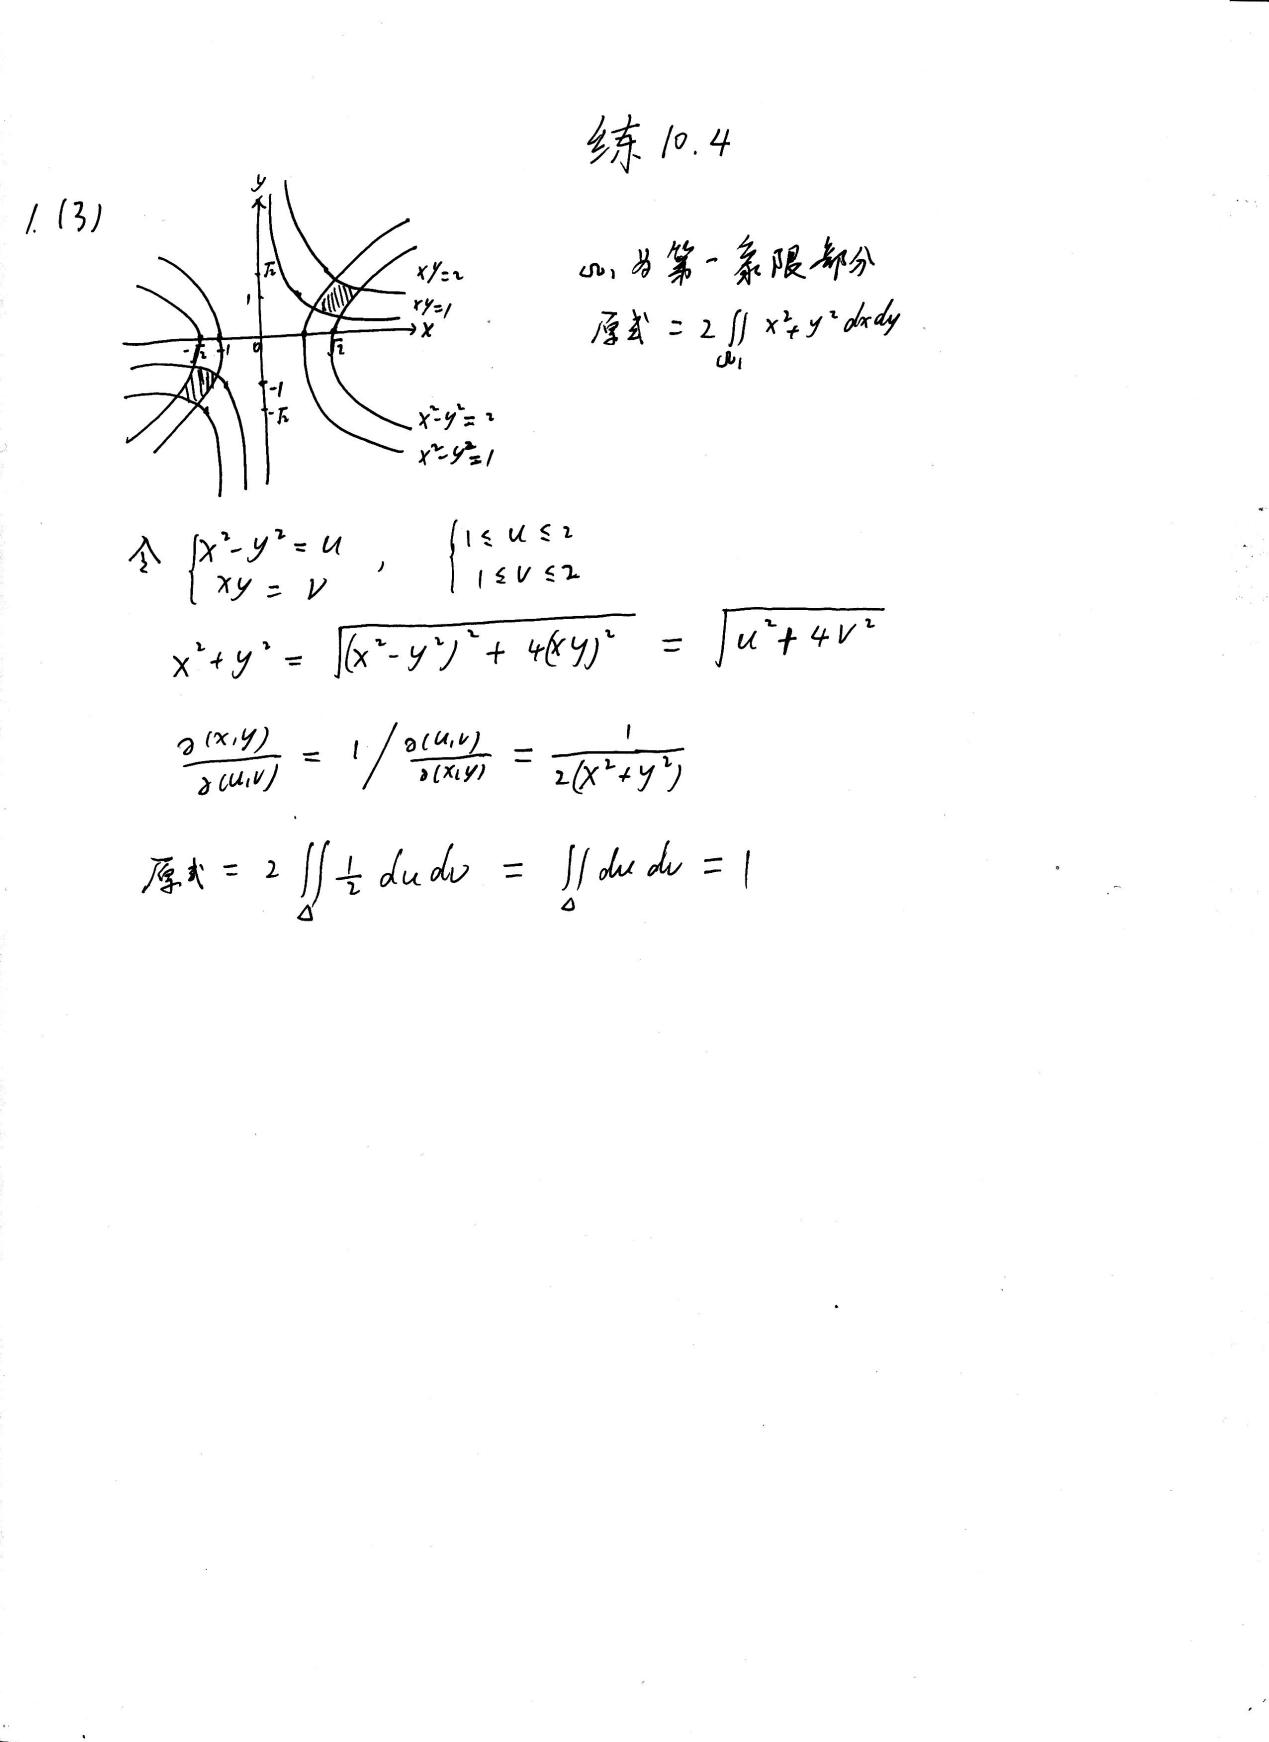 练 10.4
1.(3)
y
√2
1
xy=2
xy=1
x
-√2 -1 0 √2
-1
-√2
x²-y²=2
x²-y²=1
Ω₁为第一象限部分
原式 = 2∬_{Ω₁} x²+y² dxdy
令 { x²-y² = u , { 1≤u≤2
xy = v 1≤v≤2
x²+y² = √((x²-y²)²+4(xy)²) = √(u²+4v²)
∂(x,y)/∂(u,v) = 1/ ∂(u,v)/∂(x,y) = 1/2(x²+y²)
原式 = 2∬_Δ 1/2 du dv = ∬_Δ du dv = 1